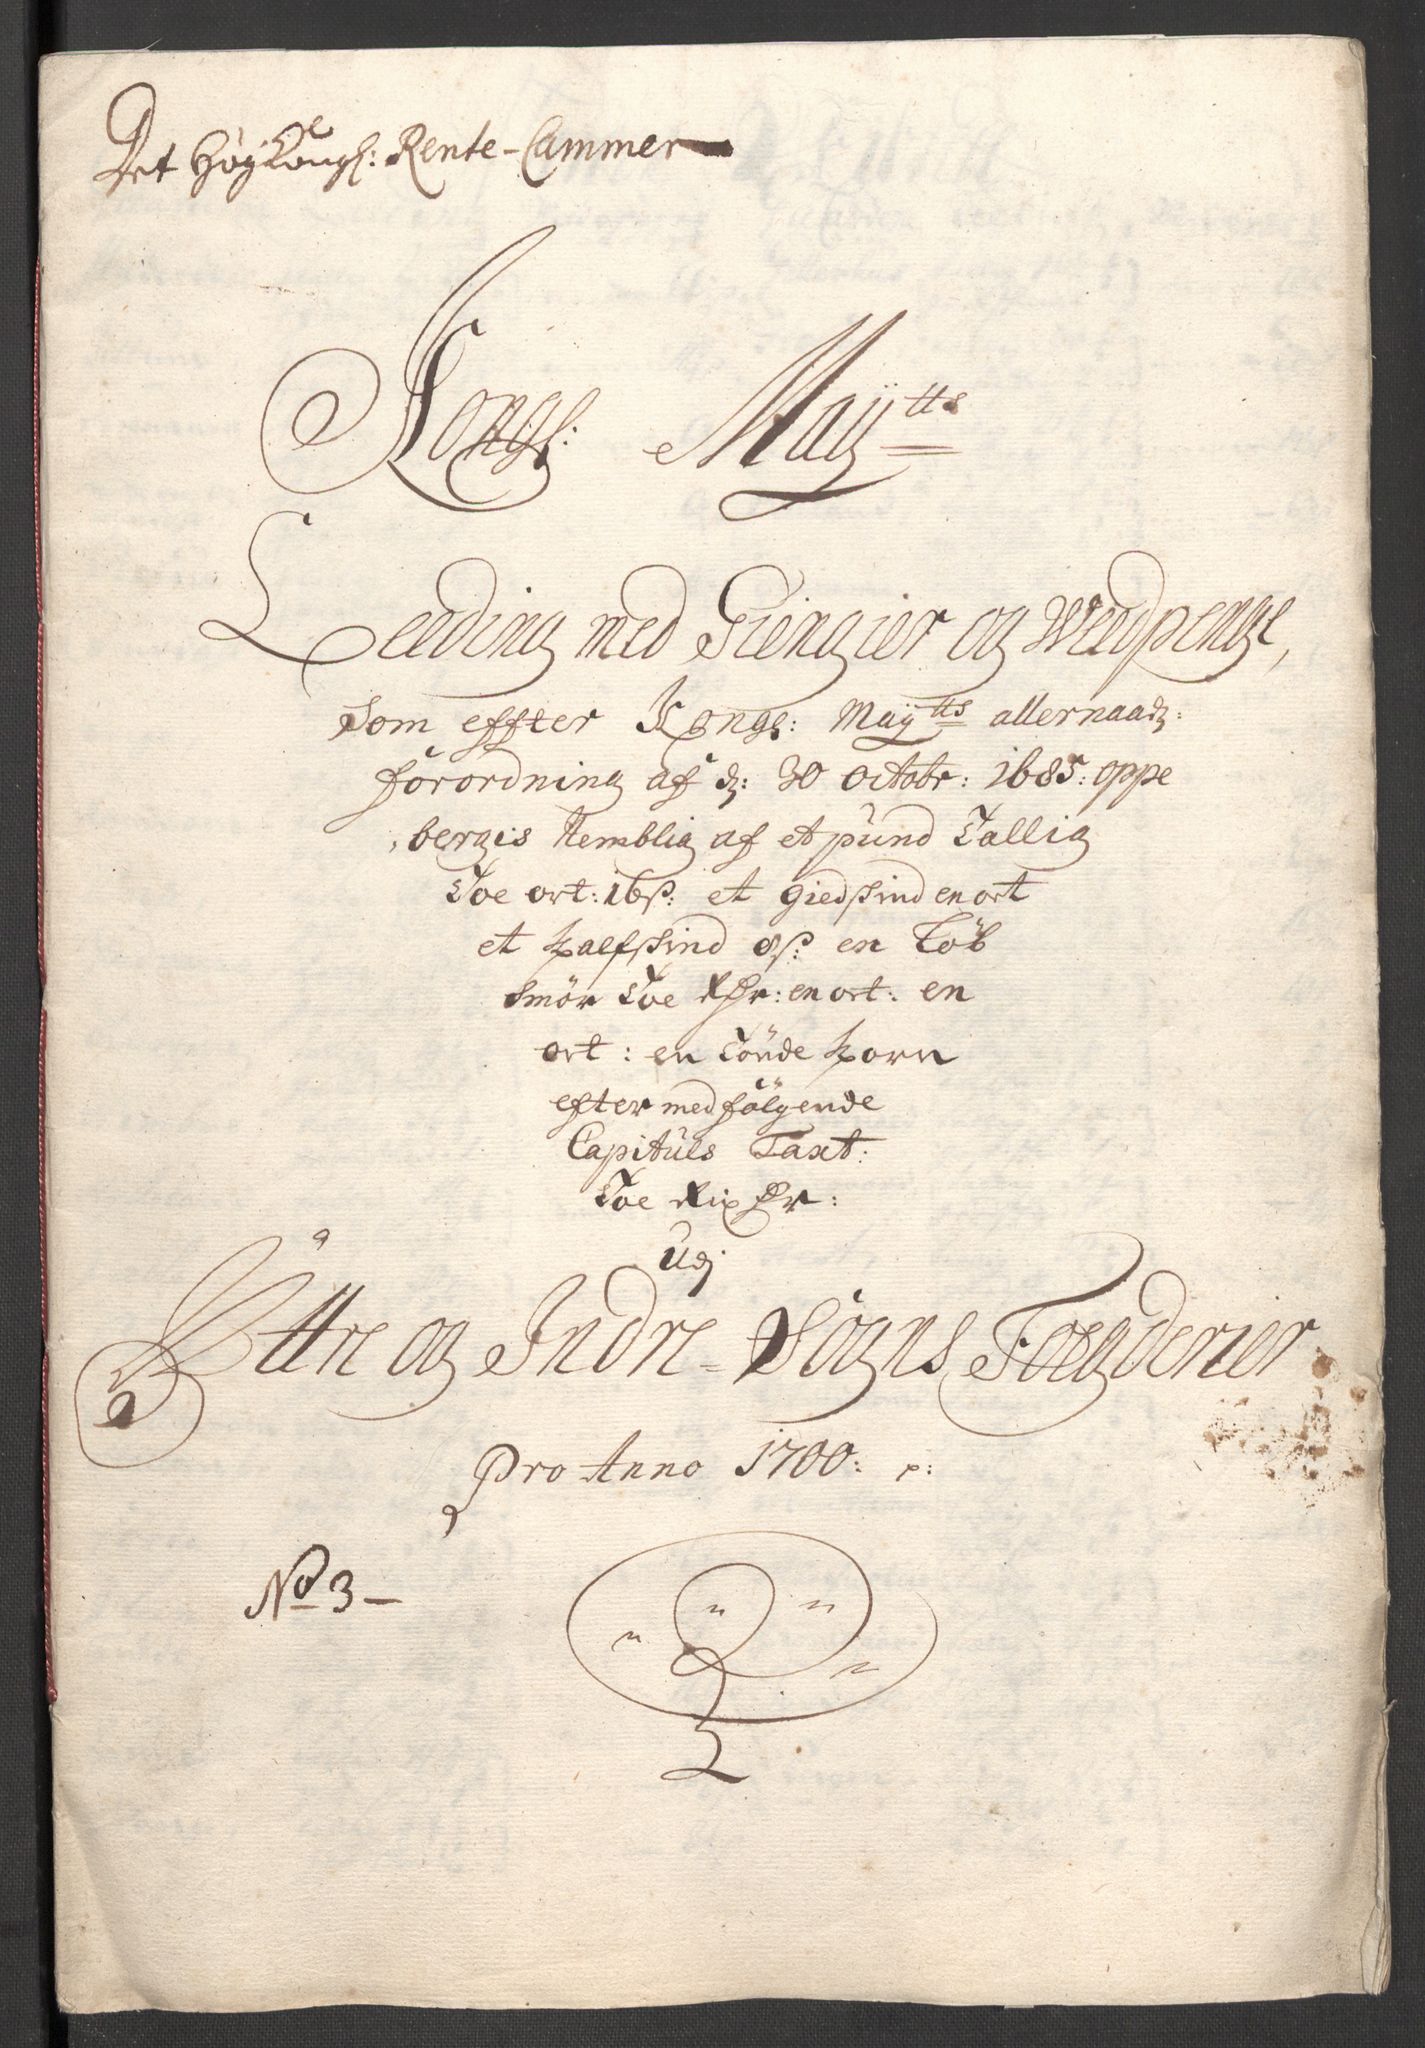 Det Høy Kongl: Rente-Cammer
Kongl: Maÿtts
Leeding med Giengier og Weedpenge,
Som effter Kongl: Maÿtts allernaad:
förordning af d: 30 octobr: 1685: oppe
bergis Nemblig af et pund Tallig
Toe ort: 16 ß: et giedskind en ort
et kalfskind 8 ß: en Löb
Smör Toe Rdr: en ort: en
ort: en Tönde korn
efter medfölgende
Capituls Taxt:
Toe Rix dr:
Udj
Ÿttre og Indre-Sogns Foegderier
Pro Anno 1700:
No 3